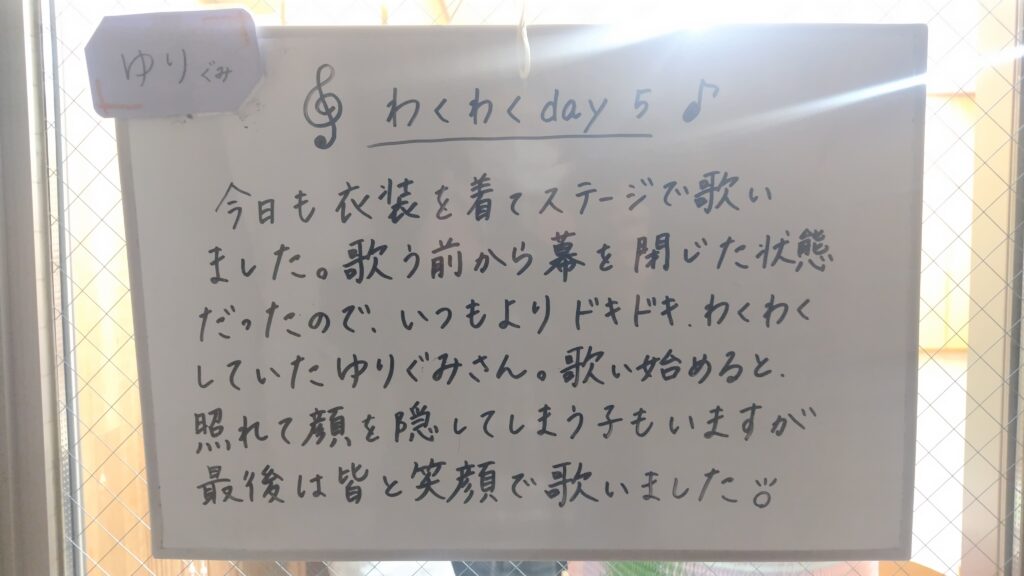 ゆりぐみ
わくわくday 5
今日も衣装を着てステージで歌い
ました。歌う前から幕を閉じた状態
だったので、いつもよりドキドキ、わくわく
していたゆりぐみさん。歌い始めると、
照れて顔を隠してしまう子もいますが
最後は皆と笑顔で歌いました